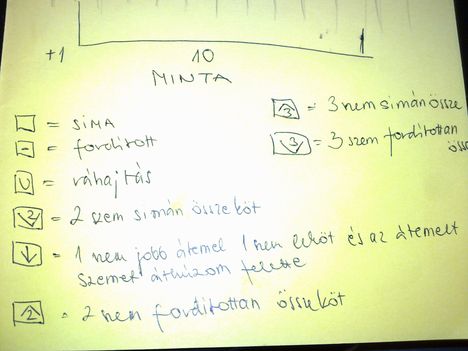 +1 10
MINTA
□ = SIMA
⊟ = fordított
U = ráhajtás
2 = 2 szem simán összeköt
↓ = 1 nem jobb átemel 1 nem leköt és az átemelt
szemet áthúzom felette
2 = 2 nem fordítottan összeköt
3 = 3 nem simán össze
3 = 3 szem fordítottan
öss